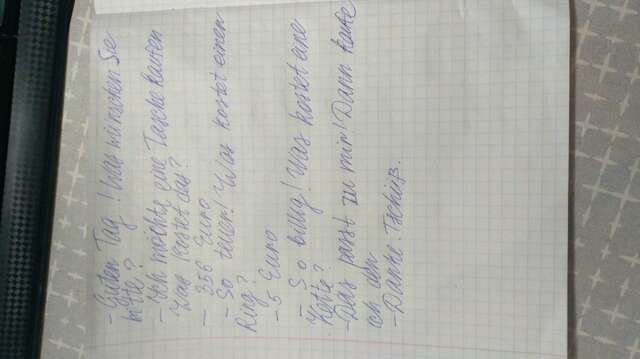 - Guten Tag! Was wünschen Sie
bitte?
- Ich möchte eine Tasche kaufen
Was kostet das?
- 356 Euro
- So teuer! Was kostet einen
Ring?
- 5 Euro
- So billig! Was kostet eine
Kette?
- Das passt zu mir! Dann kaufe
ich den
- Danke. Tschüß.